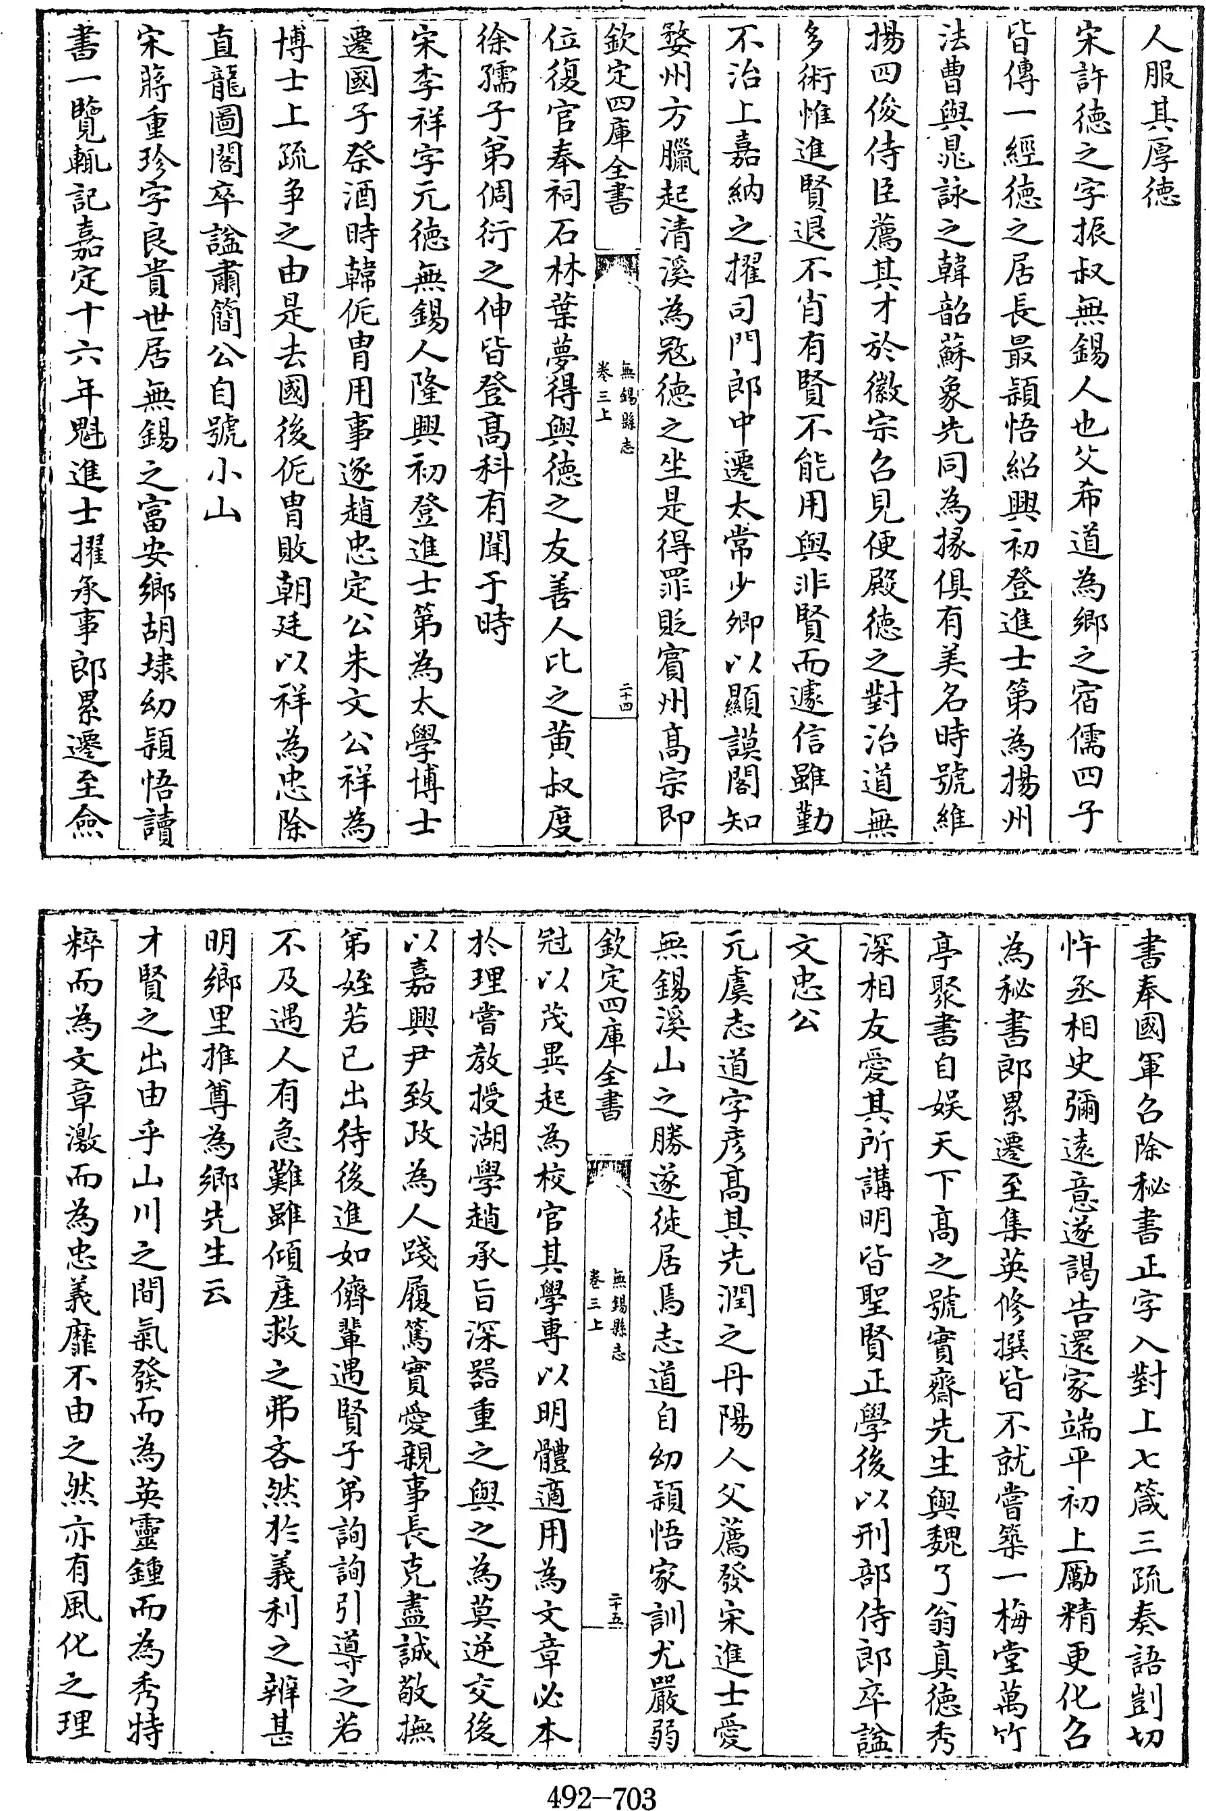 人服其厚德
宋許德之字振叔無錫人也父希道為鄉之宿儒四子
皆傳一經德之居長最頴悟紹興初登進士第為揚州
法曹與晁詠之韓韶蘇象先同為掾俱有美名時號維
揚四俊侍臣薦其才於徽宗召見便殿德之對治道無
多術惟進賢退不肖有賢不能用與非賢而遽信雖勤
不治上嘉納之擢司門郎中遷太常少卿以顯謨閣知
婺州方臘起清溪為寇德之坐是得罪貶賓州高宗即
欽定四庫全書
無錫縣志
卷三上
二十四
位復官奉祠石林葉夢得與德之友善人比之黄叔度
徐孺子弟倜衎之伸皆登高科有聞于時
宋李祥字元德無錫人隆興初登進士第為太學博士
遷國子祭酒時韓侂胄用事逐趙忠定公朱文公祥為
博士上疏争之由是去國後侂胄敗朝廷以祥為忠除
直龍圖閣卒謚肅簡公自號小山
宋蔣重珍字良貴世居無錫之富安鄉胡埭幼頴悟讀
書一覽輒記嘉定十六年魁進士擢承事郎累遷至僉
書奉國軍召除秘書正字入對上七箴三疏奏語剴切
忤丞相史彌遠意遂謁告還家端平初上勵精更化召
為秘書郎累遷至集英修撰皆不就嘗築一梅堂萬竹
亭聚書自娱天下高之號實齋先生與魏了翁真德秀
深相友愛其所講明皆聖賢正學後以刑部侍郎卒謚
文忠公
元虞志道字彦高其先潤之丹陽人父薦發宋進士愛
無錫溪山之勝遂徙居焉志道自幼頴悟家訓尤嚴弱
欽定四庫全書
無錫縣志
卷三上
二十五
冠以茂異起為校官其學專以明體適用為文章必本
於理嘗教授湖學趙承旨深器重之與之為莫逆交後
以嘉興尹致政為人踐履篤實愛親事長克盡誠敬撫
弟姪若已出待後進如儕輩遇賢子弟詢詢引導之若
不及遇人有急難雖傾産救之弗吝然於義利之辨甚
明鄉里推尊為鄉先生云
才賢之出由乎山川之間氣發而為英靈鍾而為秀特
粹而為文章激而為忠義靡不由之然亦有風化之理
492-703